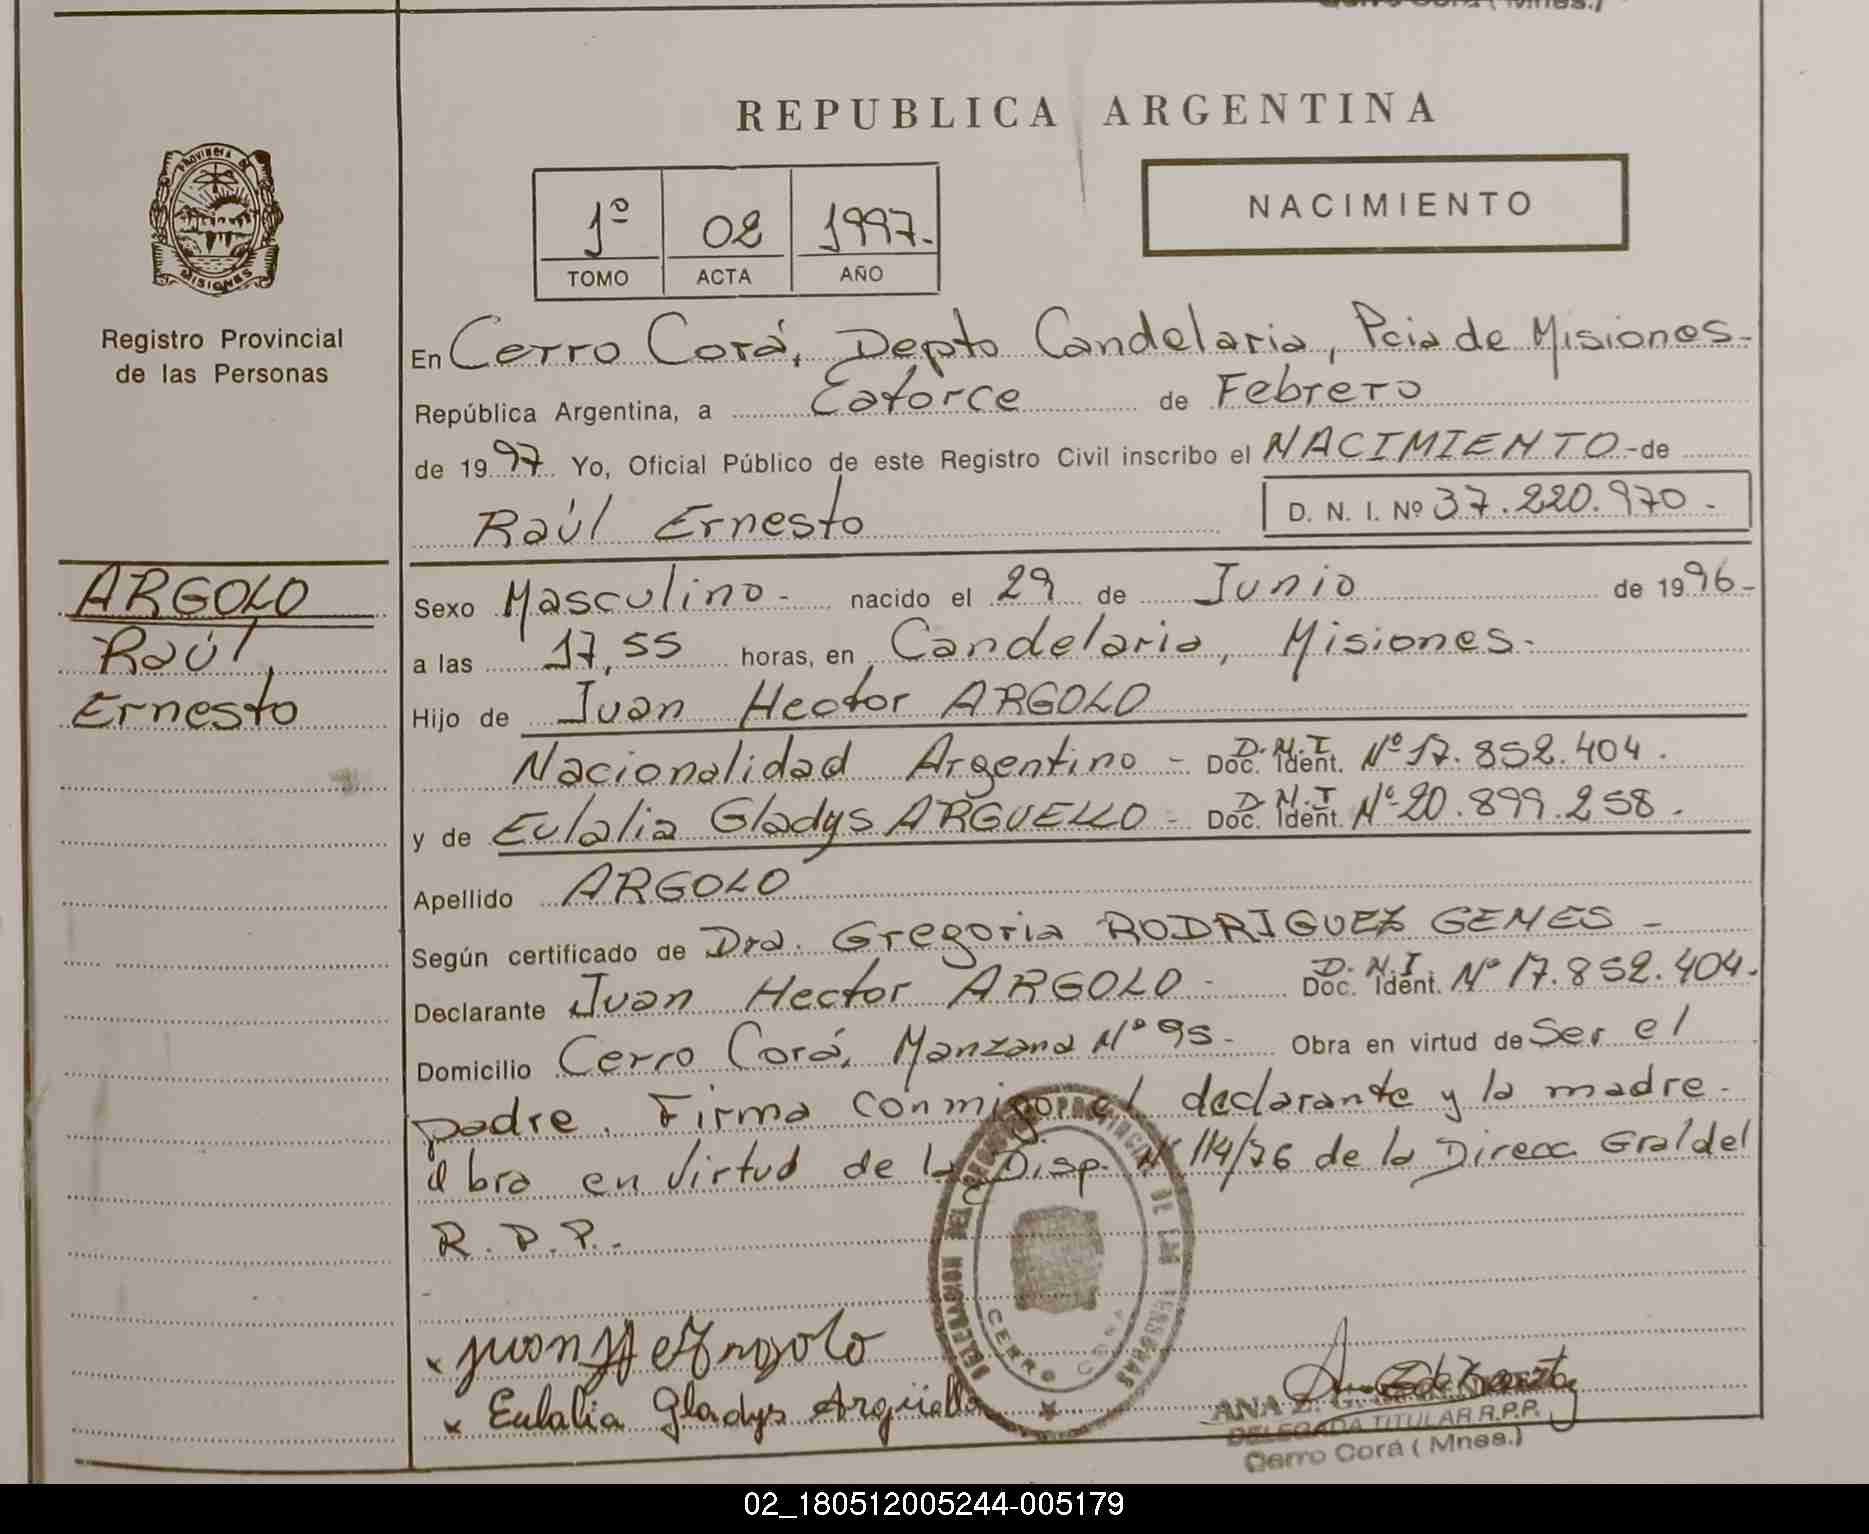 REPUBLICA ARGENTINA
PROVINCIA DE
MISIONES
Registro Provincial
de las Personas
1º 02 1997.
TOMO ACTA AÑO
NACIMIENTO
En Cerro Corá, Depto Candelaria, Pcia de Misiones-
República Argentina, a Catorce de Febrero
de 1997 Yo, Oficial Público de este Registro Civil inscribo el NACIMIENTO - de
Raúl Ernesto D. N. I. Nº 37.220.970-
ARGOLO
Raúl
Ernesto
Sexo Masculino- nacido el 29 de Junio de 1996-
a las 17,55 horas, en Candelaria, Misiones-
Hijo de Juan Hector ARGOLO
Nacionalidad Argentino - D.N.I Doc. Ident. Nº 17.852.404.
y de Eulalia Gladys ARGUELLO - D.N.I Doc. Ident. Nº 20.899.258.
Apellido ARGOLO
Según certificado de Dra. Gregoria RODRIGUEZ GEMES -
Declarante Juan Hector ARGOLO - D.N.I. Doc. Ident. Nº 17.852.404.
Domicilio Cerro Corá, Manzana Nº 95- Obra en virtud de Ser el
padre. Firma conmigo el declarante y la madre-
Obra en virtud de la Disp. Nº 114/76 de la Direcc. Gral del
R.P.P.-
DELEGACION DEL REGISTRO PROVINCIAL DE LAS PERSONAS
CERRO CORA
x Juan H Argolo
x Eulalia Gladys Argüello
ANA
DELEGADA TITULAR R.P.P.
Cerro Corá (Mnes.)
02_180512005244-005179